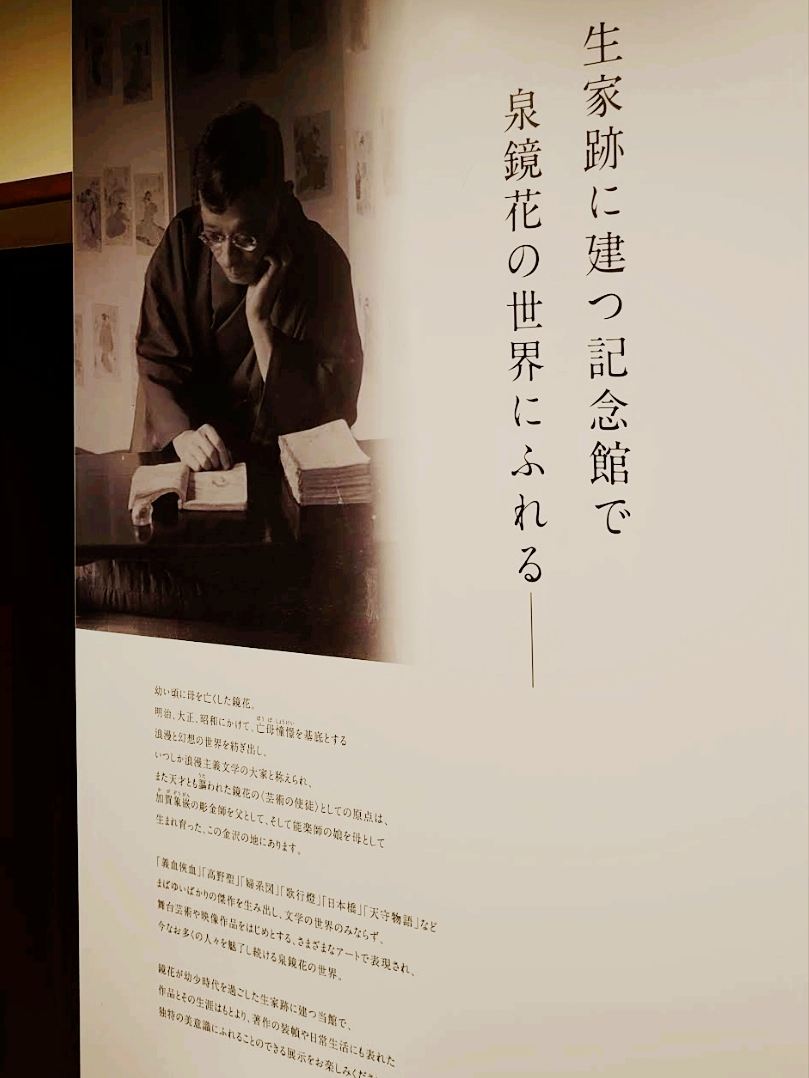 生家跡に建つ記念館で
泉鏡花の世界にふれる――
幼い頃に母を亡くした鏡花。
明治、大正、昭和にかけて、亡母憧憬を基底とする
浪漫と幻想の世界を紡ぎ出し、
いつしか浪漫主義文学の大家と称えられ、
また天才とも謳われた鏡花の〈芸術の使徒〉としての原点は、
加賀象嵌の彫金師を父として、そして能楽師の娘を母として
生まれ育った、この金沢の地にあります。
「義血侠血」「高野聖」「婦系図」「歌行燈」「日本橋」「天守物語」など
まばゆいばかりの傑作を生み出し、文学の世界のみならず、
舞台芸術や映像作品をはじめとする、さまざまなアートで表現され、
今なお多くの人々を魅了し続ける泉鏡花の世界。
鏡花が幼少時代を過ごした生家跡に建つ当館で、
作品とその生涯はもとより、著作の装幀や日常生活にも表れた
独特の美意識にふれることのできる展示をお楽しみくださ